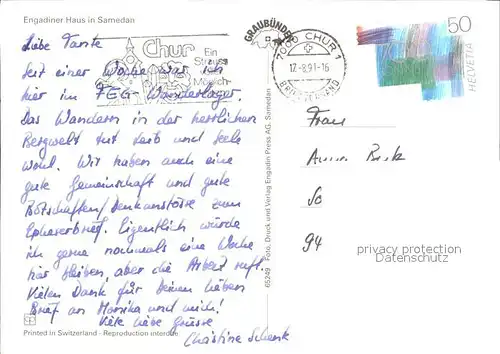 Engadiner Haus in Samedan
Liebe Tante
Seit einer Woche war ich
hier im FEG-Wanderlager.
Das Wandern in der herrlichen
Bergwelt tut Leib und Seele
wohl. Wir haben auch eine
gute Gemeinschaft und gute
Botschaften/Denkanstösse zum
Epheserbrief. Eigentlich würde
ich gerne nochmals eine Woche
hier bleiben, aber die Arbeit ruft.
Vielen Dank für Deinen lieben
Brief an Monika und mich!
Viele liebe Grüsse
Christine Schenk
Printed in Switzerland - Reproduction interdite
Chur
Ein
GRAUBÜNDEN
7000 CHUR 1
12-8.91-16
BRIEFVERSAND
65249 Foto, Druck und Verlag Engadin Press AG, Samedan
50
HELVETIA
Frau
94
privacy protection
Datenschutz